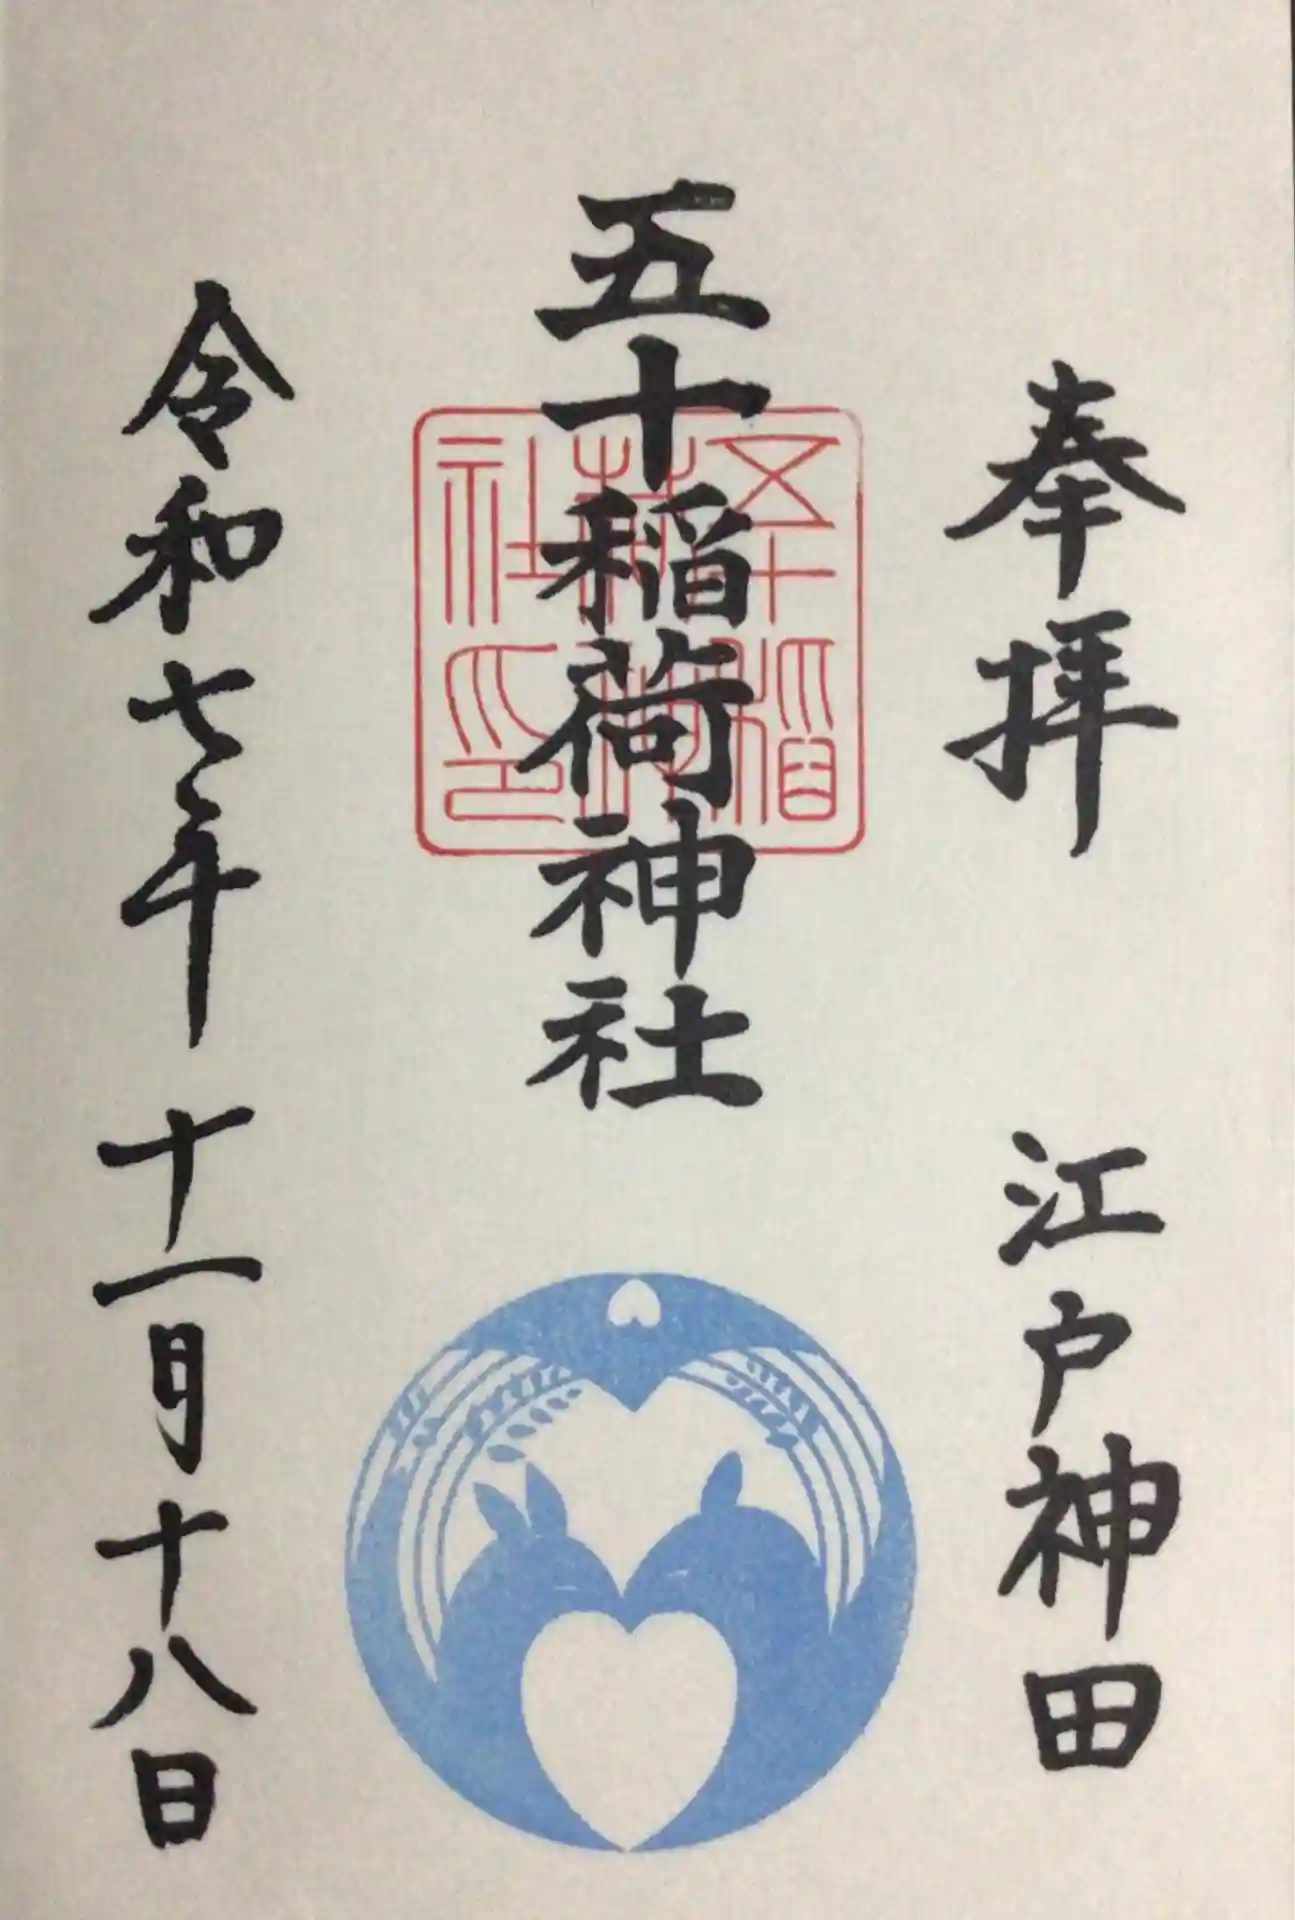 奉拝 江戸神田
五十稲荷神社
五十稲荷神社印
令和七年十一月十八日